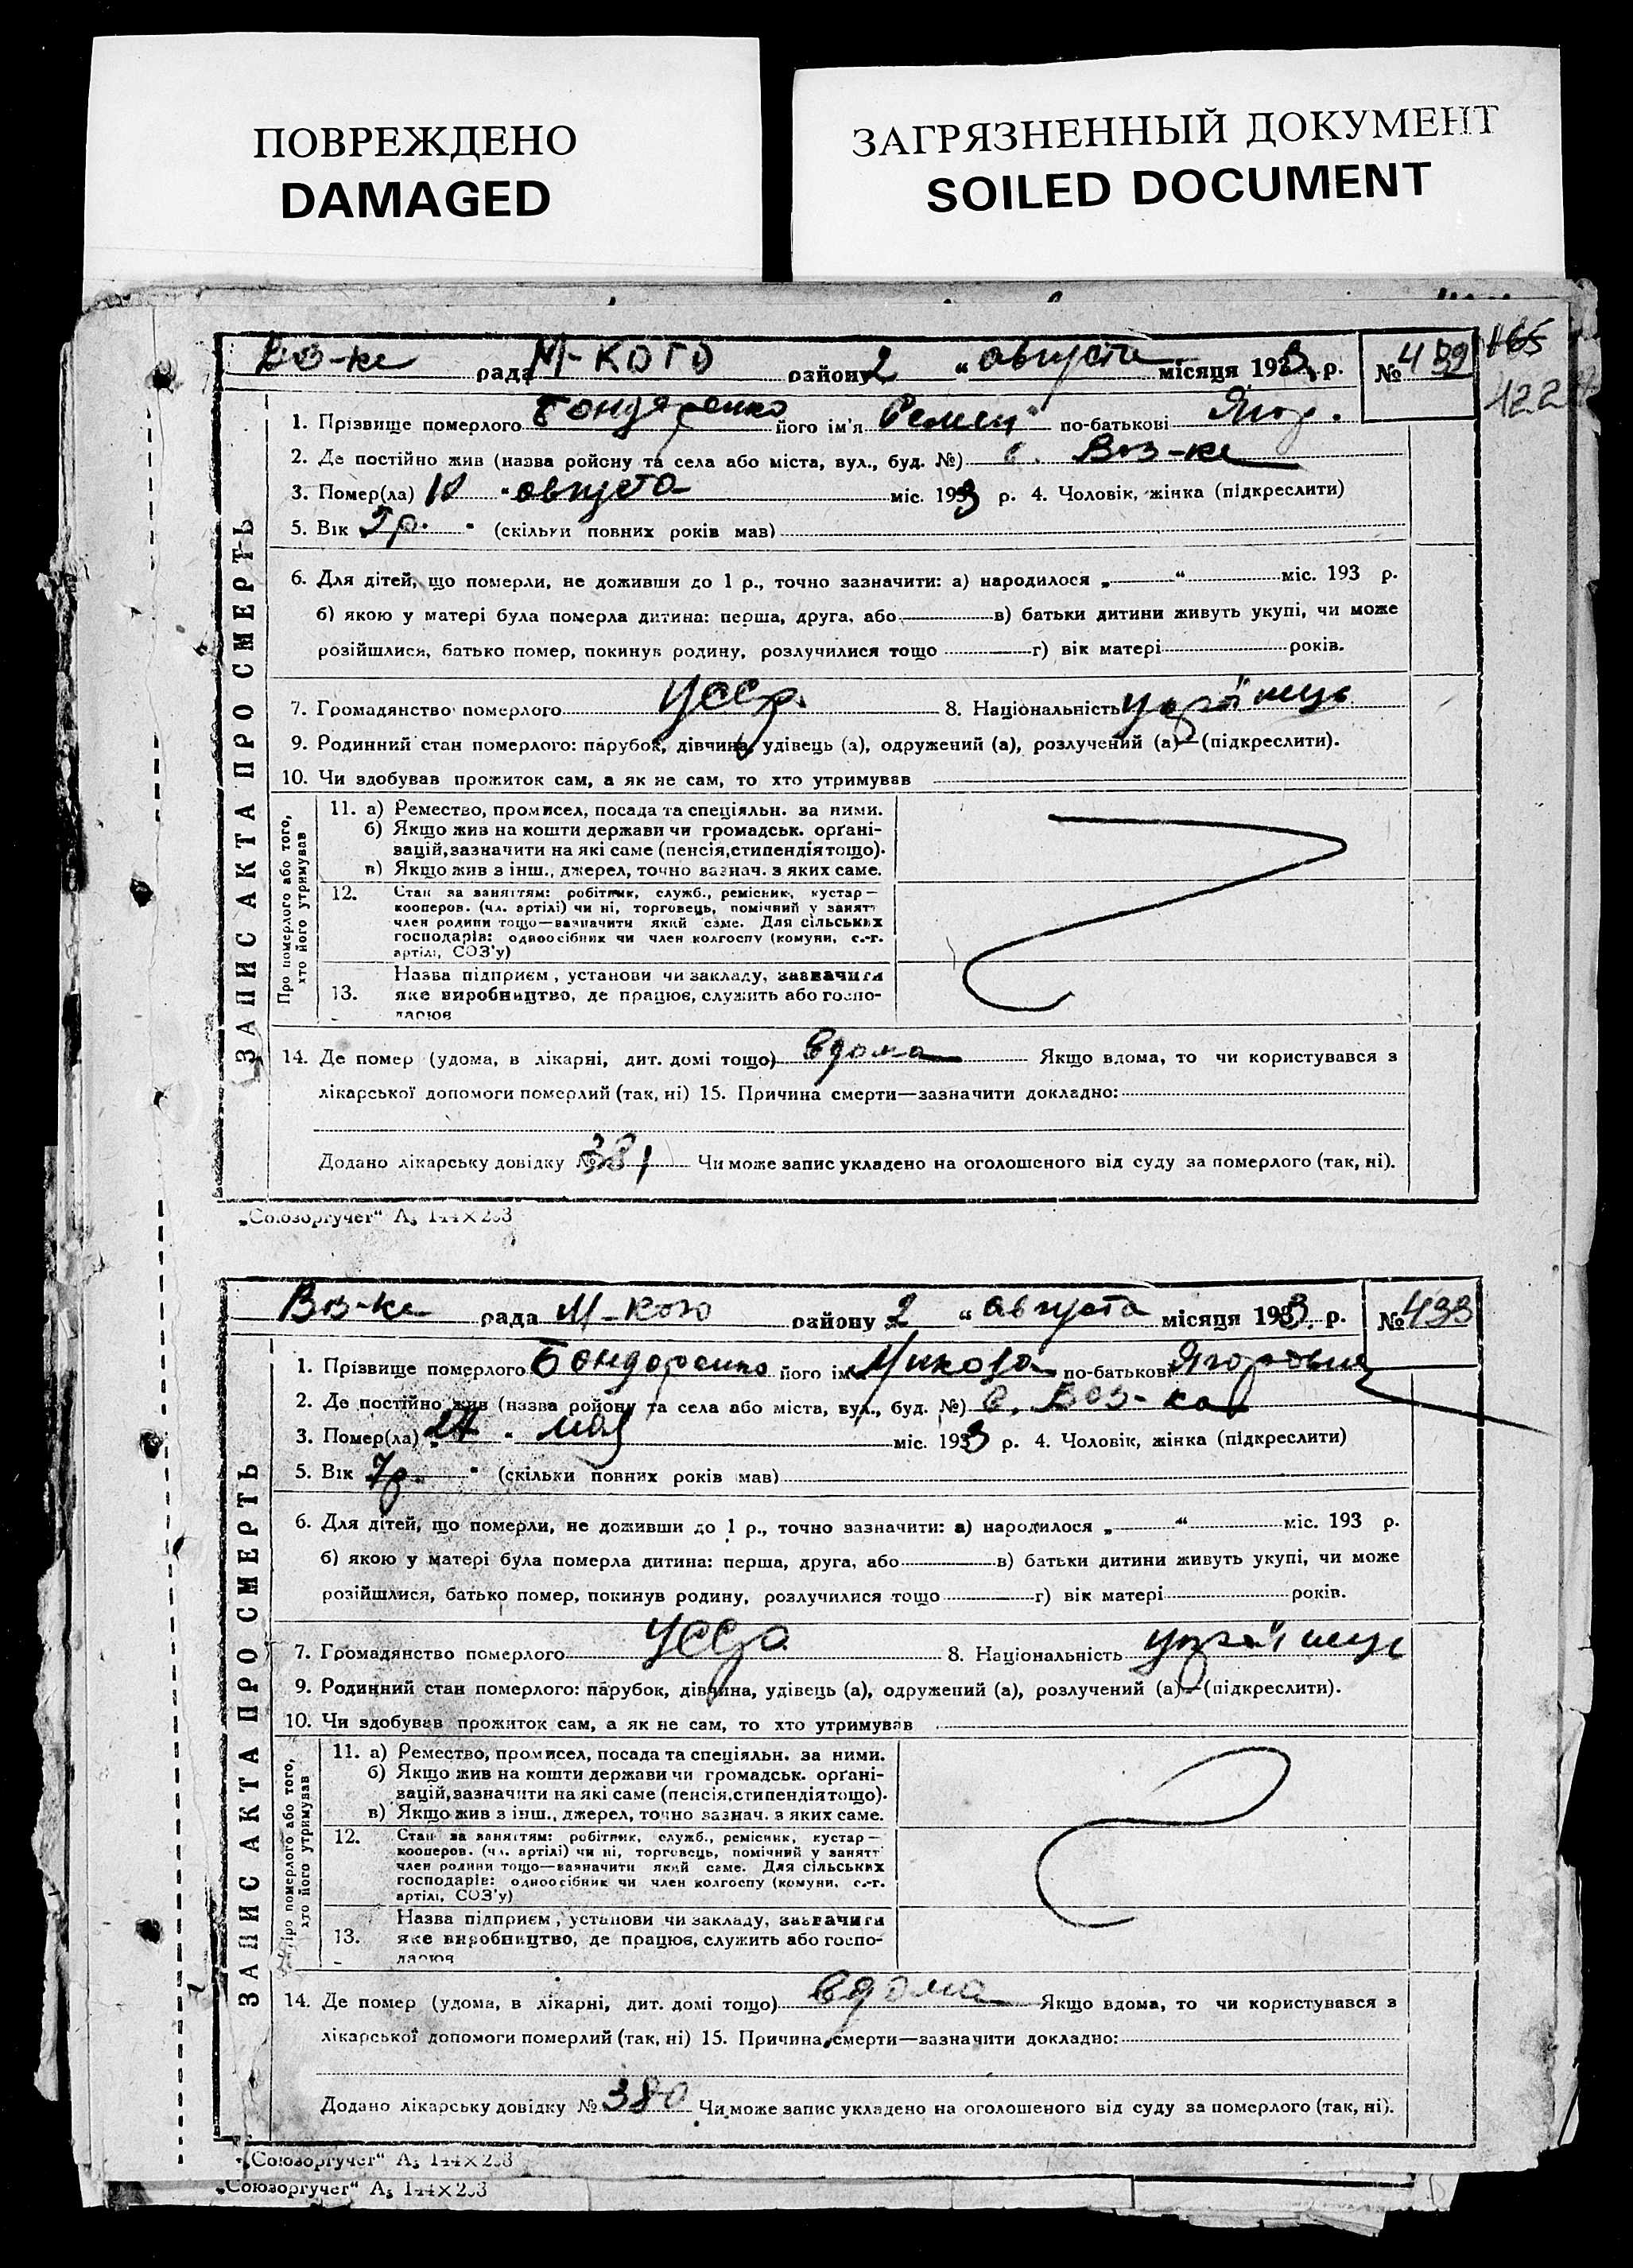 ПОВРЕЖДЕНО
DAMAGED
ЗАГРЯЗНЕННЫЙ ДОКУМЕНТ
SOILED DOCUMENT
Воз-ке рада М-кого району 2 „ августа місяця 1933 р. №
122
ЗАПИС АКТА ПРО СМЕРТЬ
1. Прізвище померлого Бондаренко його ім'я по-батькові Ягор.
2. Де постійно жив (назва ройону та села або міста, вул., буд. №) с. Воз-ке
3. Помер(ла) „ августа міс. 1933 р. 4. Чоловік, жінка (підкреслити)
5. Вік р. (скільки повних років мав)
6. Для дітей, що померли, не доживши до 1 р., точно зазначити: а) народилося „ “ міс. 193 р.
б) якою у матері була померла дитина: перша, друга, або в) батьки дитини живуть укупі, чи може
розійшлися, батько помер, покинув родину, розлучилися тощо г) вік матері років.
7. Громадянство померлого УССР. 8. Національність українець
9. Родинний стан померлого: парубок, дівчина, удівець (а), одружений (а), розлучений (а)—(підкреслити).
10. Чи здобував прожиток сам, а як не сам, то хто утримував
Про померлого або того,
хто його утримував
11. а) Ремество, промисел, посада та спеціяльн. за ними.
б) Якщо жив на кошти держави чи громадськ. орґані-
зацій, зазначити на які саме (пенсія, стипендія тощо).
в) Якщо жив з інш., джерел, точно зазнач. з яких саме.
12. Стан за заняттям: робітник, служб., ремісник, кустар—
кооперов. (чл. артілі) чи ні, торговець, помічний у занятт
член родини тощо—зазначити який саме. Для сільських
господарів: одноосібник чи член колгоспу (комуни, с.-г.
артілі, СОЗ'у)
13. Назва підприєм, установи чи закладу, зазначити
яке виробництво, де працює, служить або госпо-
дарює
14. Де помер (удома, в лікарні, дит. домі тощо) вдома Якщо вдома, то чи користувався з
лікарської допомоги померлий (так, ні) 15. Причина смерти—зазначити докладно:
Додано лікарську довідку № 381 Чи може запис укладено на оголошеного від суду за померлого (так, ні).
„Союзоргучет“ А₅ 144×203
Воз-ке рада М-кого району 2 „ августа місяця 1933 р. № 433
ЗАПИС АКТА ПРО СМЕРТЬ
1. Прізвище померлого Бондаренко його ім Микола по-батькові Ягорович
2. Де постійно жив (назва ройону та села або міста, вул., буд. №) с. Воз-ка
3. Помер(ла) „ мая міс. 1933 р. 4. Чоловік, жінка (підкреслити)
5. Вік 7 р. (скільки повних років мав)
6. Для дітей, що померли, не доживши до 1 р., точно зазначити: а) народилося „ “ міс. 193 р.
б) якою у матері була померла дитина: перша, друга, або в) батьки дитини живуть укупі, чи може
розійшлися, батько помер, покинув родину, розлучилися тощо г) вік матері років.
7. Громадянство померлого УССР 8. Національність українець
9. Родинний стан померлого: парубок, дівчина, удівець (а), одружений (а), розлучений (а)—(підкреслити).
10. Чи здобував прожиток сам, а як не сам, то хто утримував
Про померлого або того,
хто його утримував
11. а) Ремество, промисел, посада та спеціяльн. за ними.
б) Якщо жив на кошти держави чи громадськ. орґані-
зацій, зазначити на які саме (пенсія, стипендія тощо).
в) Якщо жив з інш., джерел, точно зазнач. з яких саме.
12. Стан за заняттям: робітник, служб., ремісник, кустар—
кооперов. (чл. артілі) чи ні, торговець, помічний у занятт
член родини тощо—зазначити який саме. Для сільських
господарів: одноосібник чи член колгоспу (комуни, с.-г.
артілі, СОЗ'у)
13. Назва підприєм, установи чи закладу, зазначити
яке виробництво, де працює, служить або госпо-
дарює
14. Де помер (удома, в лікарні, дит. домі тощо) вдома Якщо вдома, то чи користувався з
лікарської допомоги померлий (так, ні) 15. Причина смерти—зазначити докладно:
Додано лікарську довідку № 380 Чи може запис укладено на оголошеного від суду за померлого (так, ні).
„Союзоргучет“ А₅ 144×203
„Союзоргучет“ А₅ 144×203